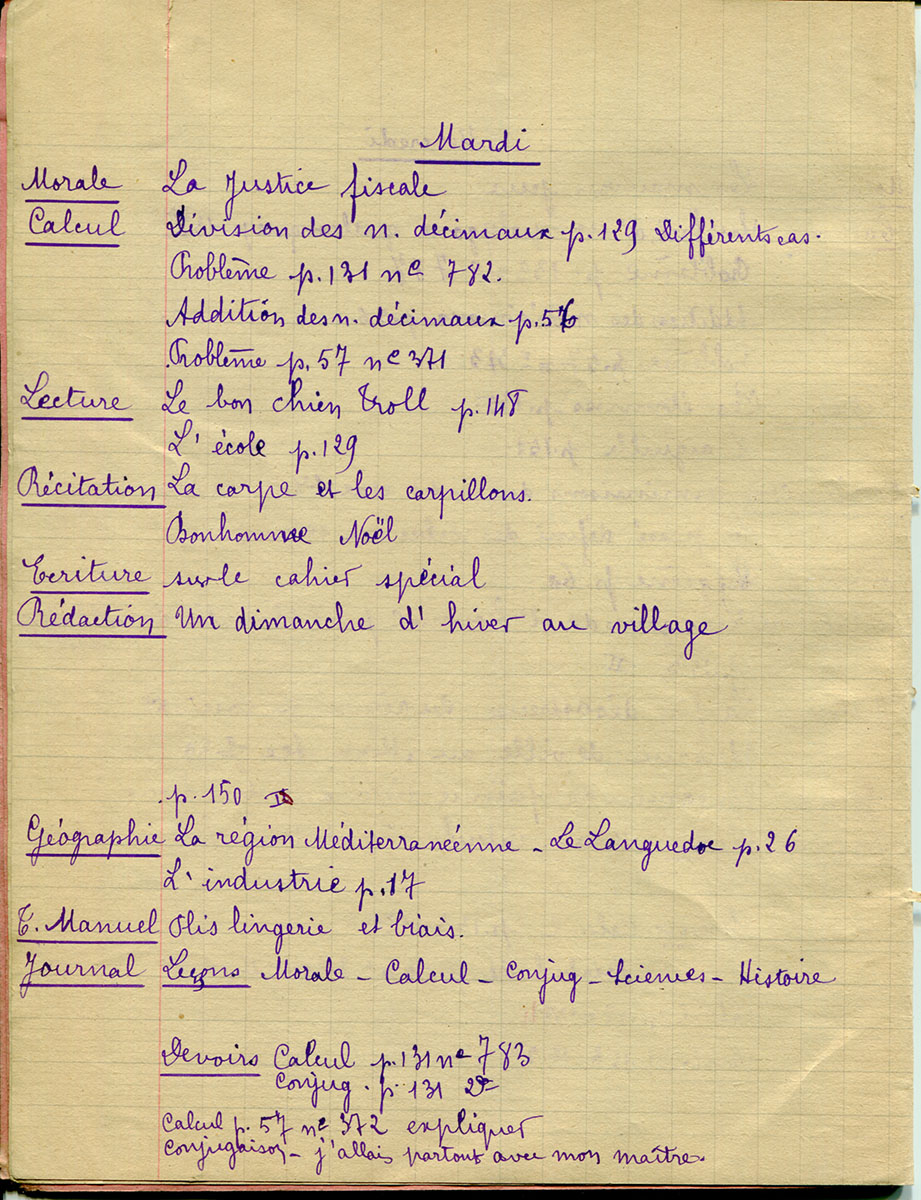 Mardi
Morale La Justice fiscale
Calcul Division des n. décimaux p.129 Différents cas.
Problème p.131 no 782.
Addition des n. décimaux p.56
Problème p.57 no 371
Lecture Le bon chien Troll p.148
L'école p.129
Récitation La carpe et les carpillons.
Bonhomme Noël
Ecriture sur le cahier spécial
Rédaction Un dimanche d'hiver au village
p.150 II
Géographie La région Méditerraneénne - Le Languedoc p.26
L'industrie p.17
T. Manuel Plis lingerie et biais.
Journal Leçons Morale - Calcul - Conjug - Sciences - Histoire
Devoirs Calcul p.131 no 783
Conjug. p. 131 2o
Calcul p. 57 no 372 expliquer
Conjugaison - j'allais partout avec mon maître.